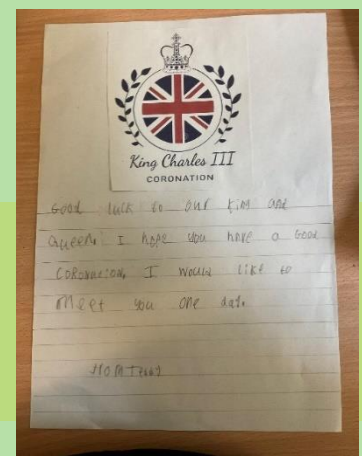 King Charles III
CORONATION
Good luck to our King and
Queen. I hope you have a Good
CORONation. I would like to
Meet you one day.